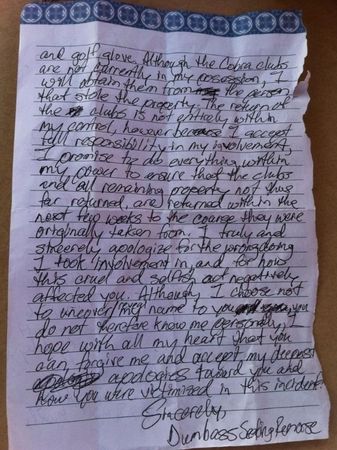 and golf glove. Although the Cobra clubs
are not currently in my possession, I
will obtain them from the person
that stole the property. The return of
the clubs is not entirely within
my control, however because I accept
full responsibility in my involvement,
I promise to do everything within
my power to ensure that the clubs
and all remaining property not thus
far returned, are returned within the
next few weeks to the course they were
originally taken from. I truly and
sincerely apologize for the wrongdoing
I took involvement in, and for how
this cruel and selfish act negatively
affected you. Although I choose not
to uncover my name to you you
do not therefore know me personally, I
hope with all my heart that you
can forgive me and accept my deepest
apologies toward you and
how you were victimised in this incident.
Sincerely,
Dumbass Seeking Remorse